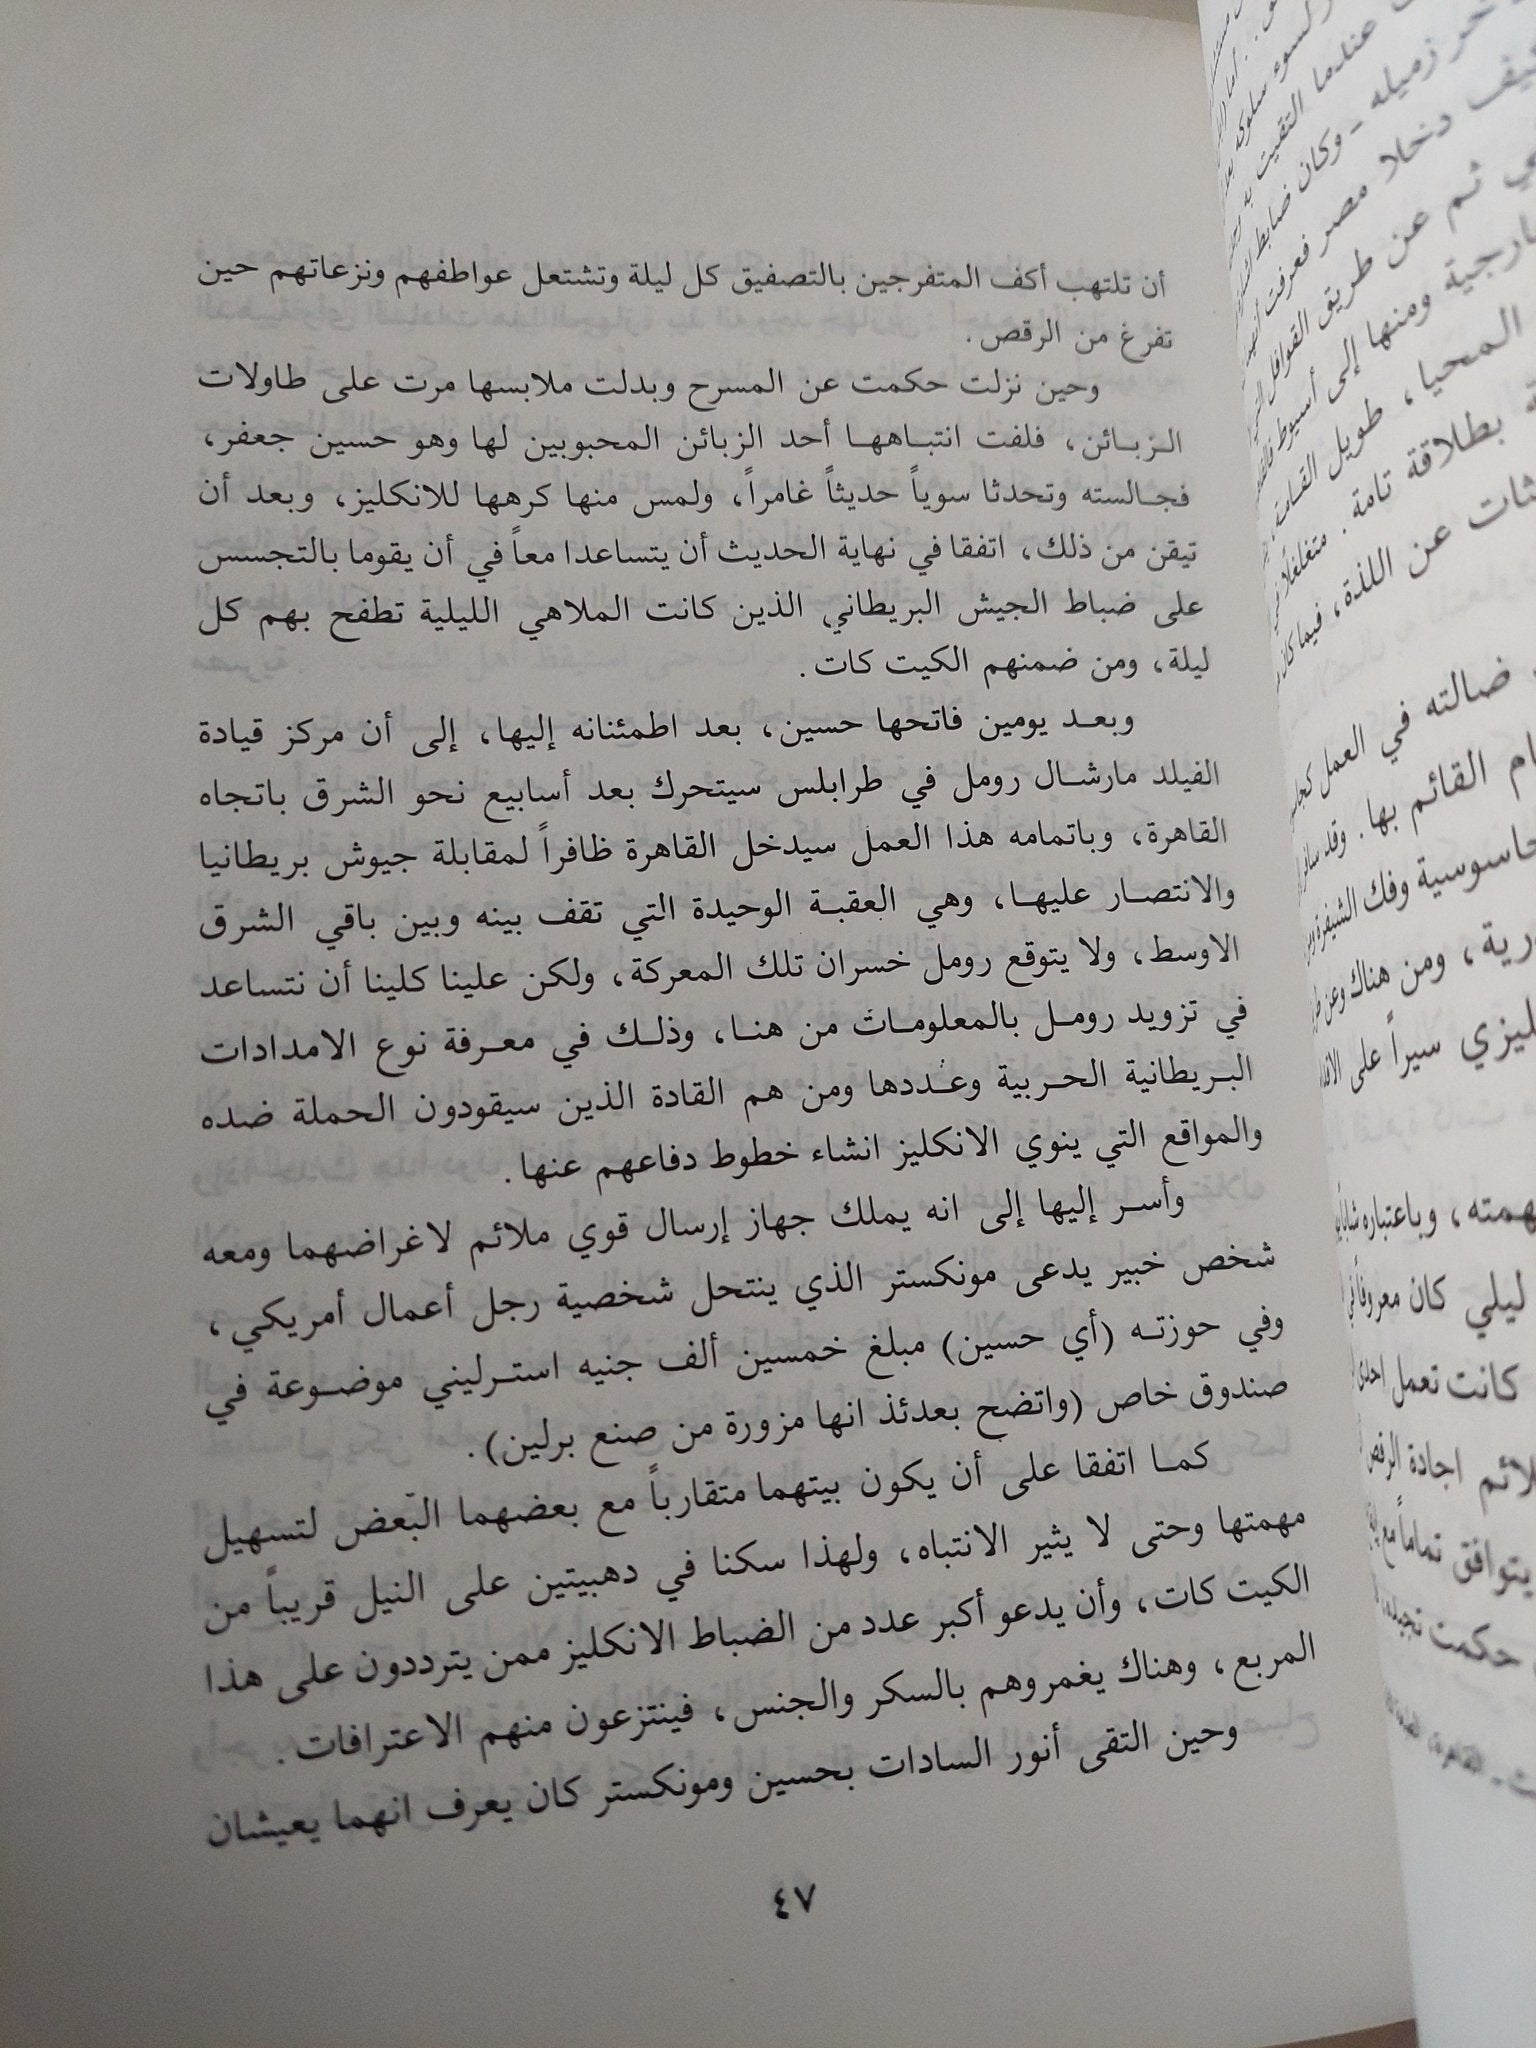 أن تلتهب أكف المتفرجين بالتصفيق كل ليلة وتشتعل عواطفهم ونزعاتهم حين
تفرغ من الرقص.
وحين نزلت حكمت عن المسرح وبدلت ملابسها مرت على طاولات
الزبائن، فلفت انتباهها أحد الزبائن المحبوبين لها وهو حسين جعفر،
فجالسته وتحدثا سوياً حديثاً غامراً، ولمس منها كرهها للانكليز، وبعد أن
تيقن من ذلك، اتفقا في نهاية الحديث أن يتساعدا معاً في أن يقوما بالتجسس
على ضباط الجيش البريطاني الذين كانت الملاهي الليلية تطفح بهم كل
ليلة، ومن ضمنهم الكيت كات.
وبعد يومين فاتحها حسين، بعد اطمئنانه إليها، إلى أن مركز قيادة
الفيلد مارشال رومل في طرابلس سيتحرك بعد أسابيع نحو الشرق باتجاه
القاهرة، وباتمامه هذا العمل سيدخل القاهرة ظافراً لمقابلة جيوش بريطانيا
والانتصار عليها، وهي العقبة الوحيدة التي تقف بينه وبين باقي الشرق
الاوسط، ولا يتوقع رومل خسران تلك المعركة، ولكن علينا كلينا أن نتساعد
في تزويد رومل بالمعلومات من هنا، وذلك في معرفة نوع الامدادات
البريطانية الحربية وعددها ومن هم القادة الذين سيقودون الحملة ضده
والمواقع التي ينوي الانكليز انشاء خطوط دفاعهم عنها.
وأسر إليها إلى انه يملك جهاز إرسال قوي ملائم لاغراضهما ومعه
شخص خبير يدعى مونكستر الذي ينتحل شخصية رجل أعمال أمريكي،
وفي حوزته (أي حسين) مبلغ خمسين ألف جنيه استرليني موضوعة في
صندوق خاص (واتضح بعدئذ انها مزورة من صنع برلين).
كما اتفقا على أن يكون بيتهما متقارباً مع بعضهما البعض لتسهيل
مهمتها وحتى لا يثير الانتباه، ولهذا سكنا في دهبيتين على النيل قريباً من
الكيت كات، وأن يدعو أكبر عدد من الضباط الانكليز ممن يترددون على هذا
المربع، وهناك يغمروهم بالسكر والجنس، فينتزعون منهم الاعترافات.
وحين التقى أنور السادات بحسين ومونكستر كان يعرف انهما يعيشان
٤٧
عندما التقيت به
زميله - وكان ضابط
دخلا مصر فعرفت
ثم عن طريق القوافل
ومنها إلى أسيوط
المحيا، طويل القامة
بطلاقة تامة. متغلغلا
عن اللذة، فيما كان
ضالته في العمل
القائم بها. وقد سافر
وفك الشيفرة
ومن هناك وعن
سيراً على
وباعتباره شاباً
ليلي كان معروفاً في
كانت تعمل احدى
اجادة الرقص
يتوافق تماماً مع
حكمت